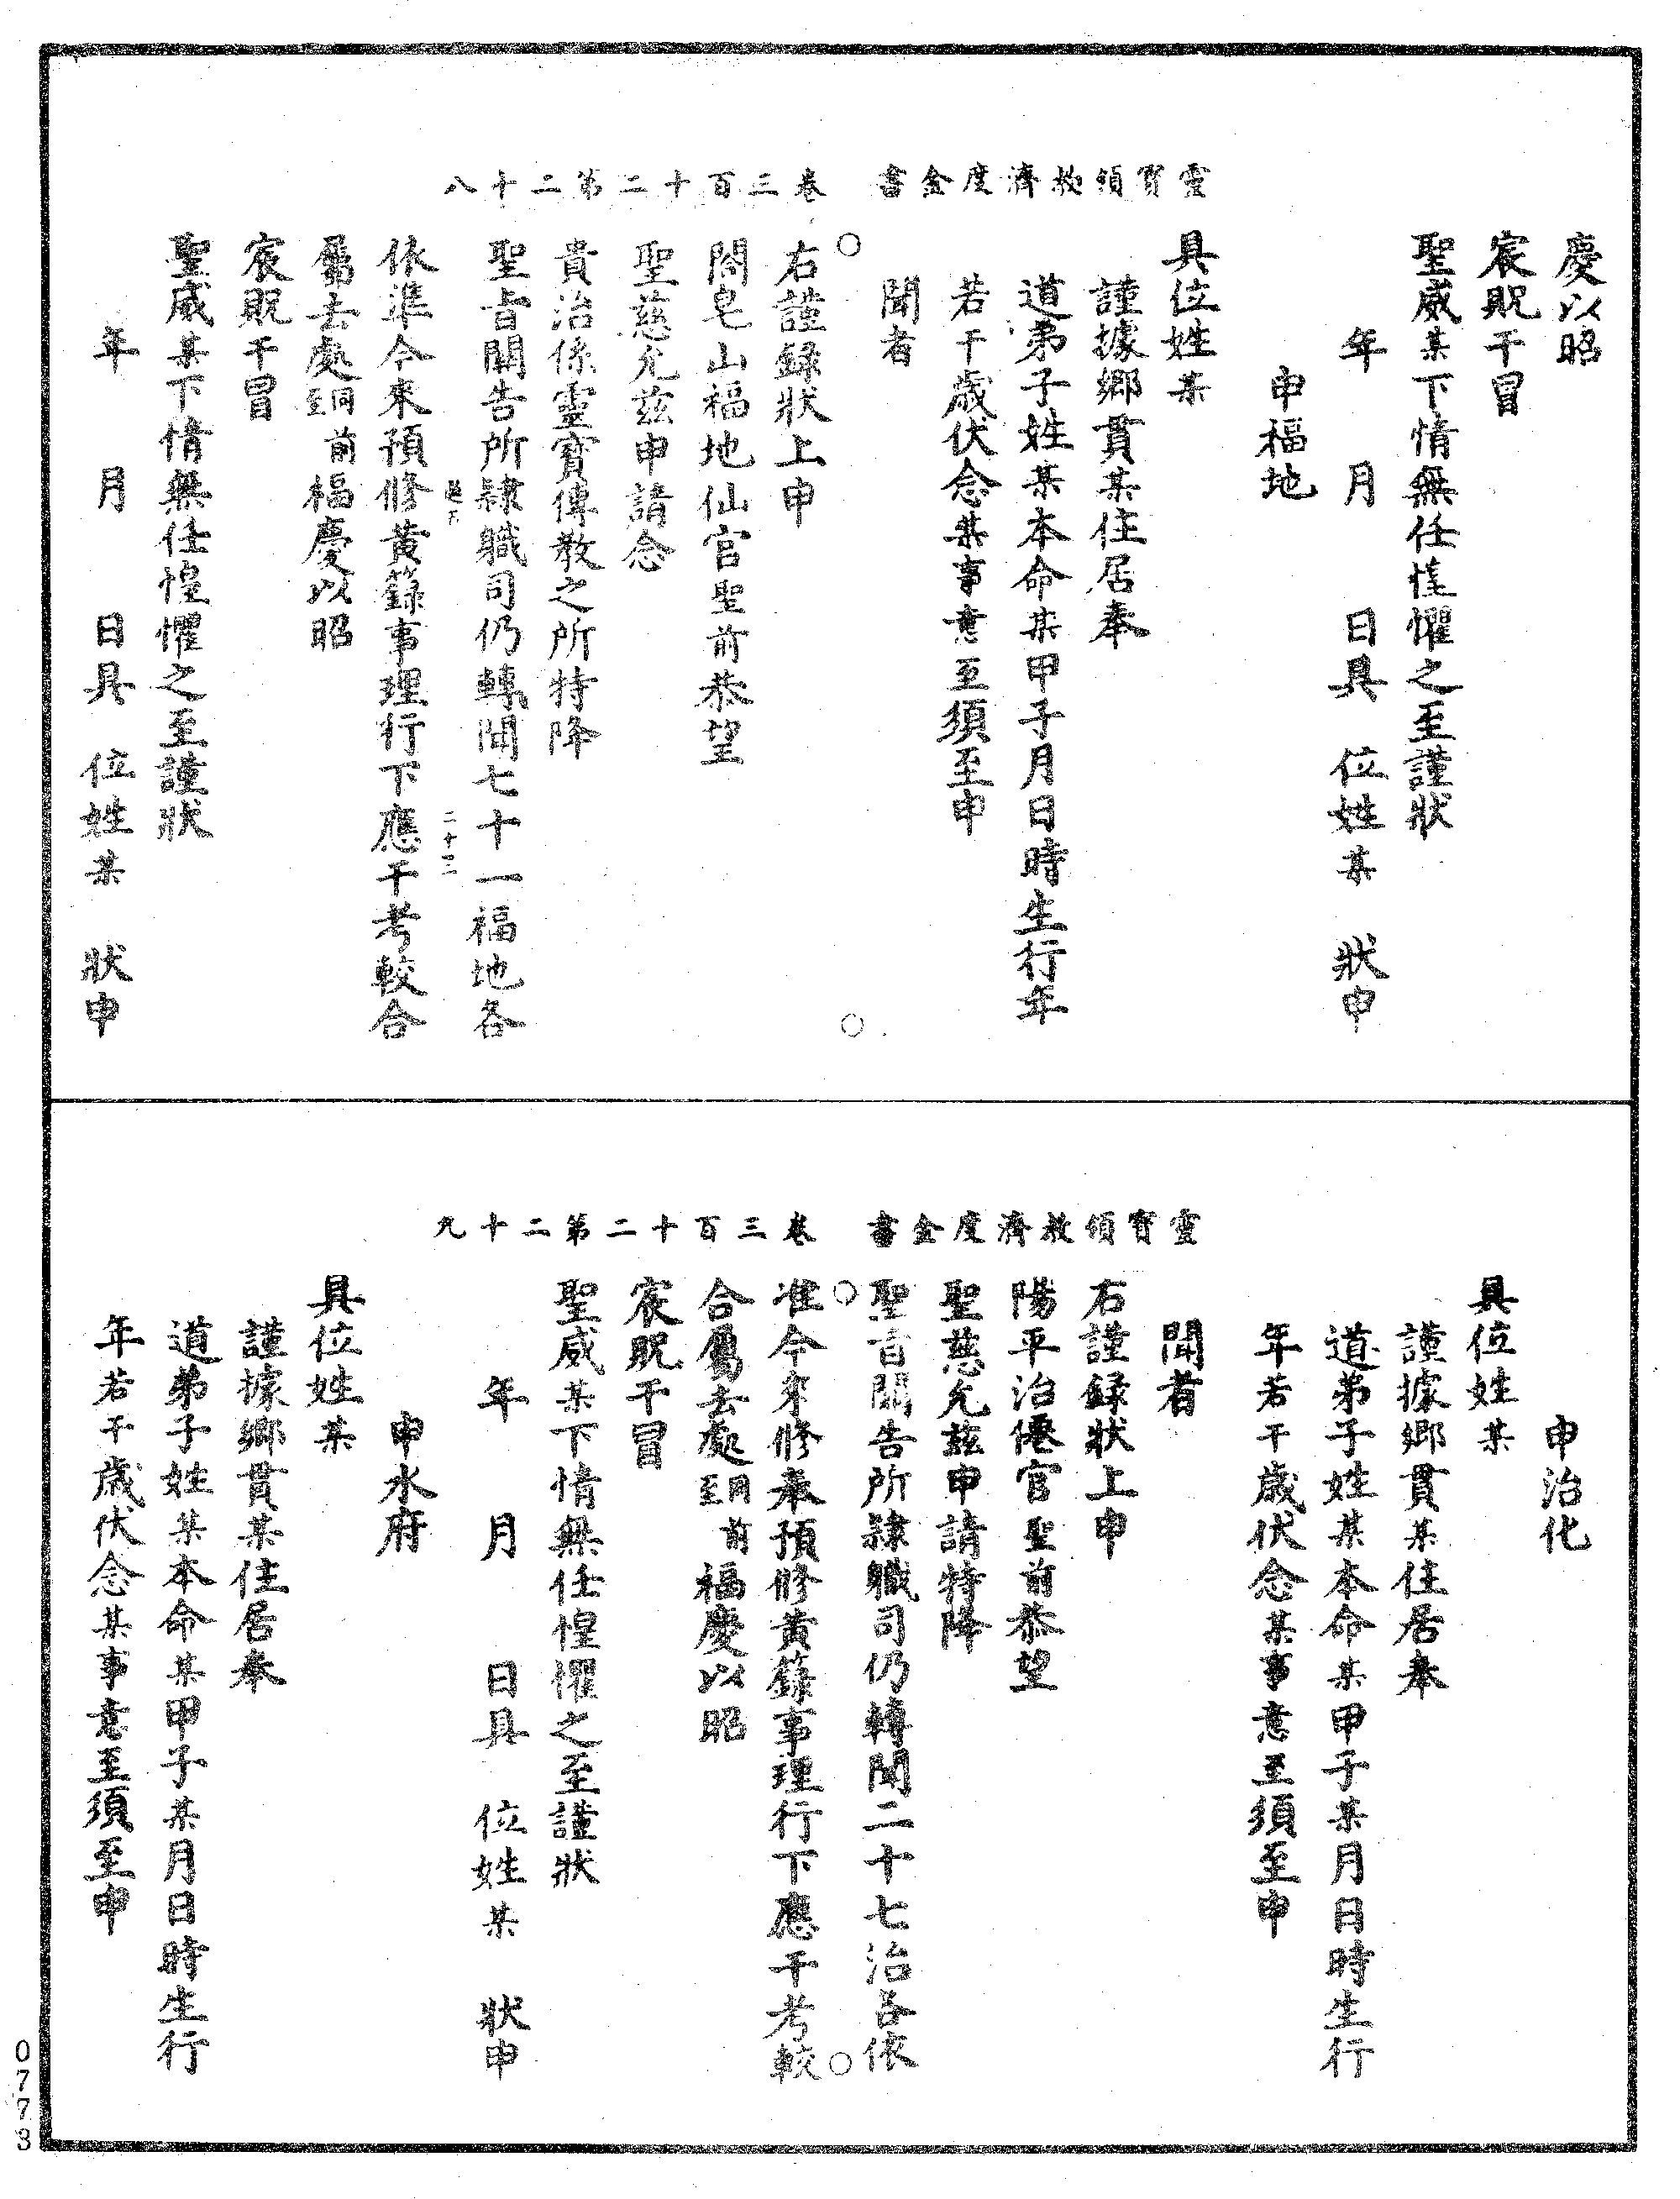 靈寶領教濟度金書　卷三百十二第二十八
慶以昭
宸貺干冒
聖威某下情無任惶懼之至謹狀
年　月　日具　位姓某　狀申
申福地
具位姓某
謹據鄉貫某住居奉
道弟子姓某本命某甲子月日時生行年
若干歲伏念某事意至須至申
聞者
右謹録狀上申
閤皂山福地仙官聖前恭望
聖慈允兹申請念
貴治係靈寶傳教之所特降
聖旨關告所隸職司仍轉聞七十一福地各
二十三
依準今來預修黃籙事理行下應干考較合
屬去處至前同福慶以昭
宸貺干冒
聖威某下情無任惶懼之至謹狀
年　月　日具　位姓某　狀申
靈寶領教濟度金書　卷三百十二第二十九
申治化
具位姓某
謹據鄉貫某住居奉
道弟子姓某本命某甲子某月日時生行
年若干歲伏念某事意至須至申
聞者
右謹録狀上申
陽平治僊官聖前恭望
聖慈允兹申請特降
聖旨關告所隸職司仍轉聞二十七治各依
准今來修奉預修黃籙事理行下應干考較
合屬去處至前同福慶以昭
宸貺干冒
聖威某下情無任惶懼之至謹狀
年　月　日具　位姓某　狀申
申水府
具位姓某
謹據鄉貫某住居奉
道弟子姓某本命某甲子某月日時生行
年若干歲伏念某事意至須至申
0773